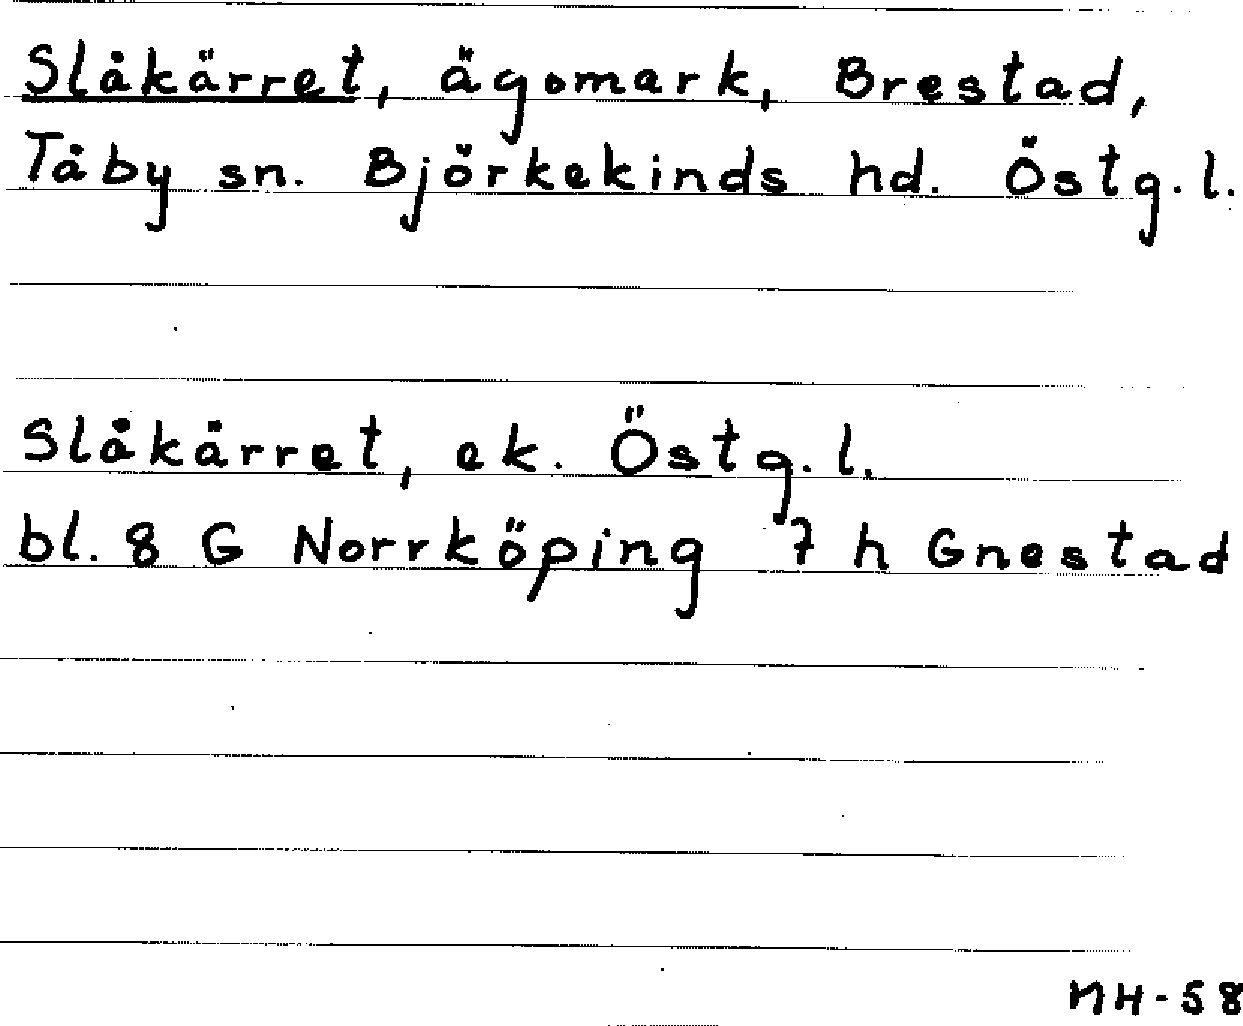 Slåkärret, ägomark, Brestad,
Tåby sn. Björkekinds hd. Östg. l.
Slåkärret, ek. Östg. l.
bl. 8 G Norrköping 7 h Gnestad
NH-58